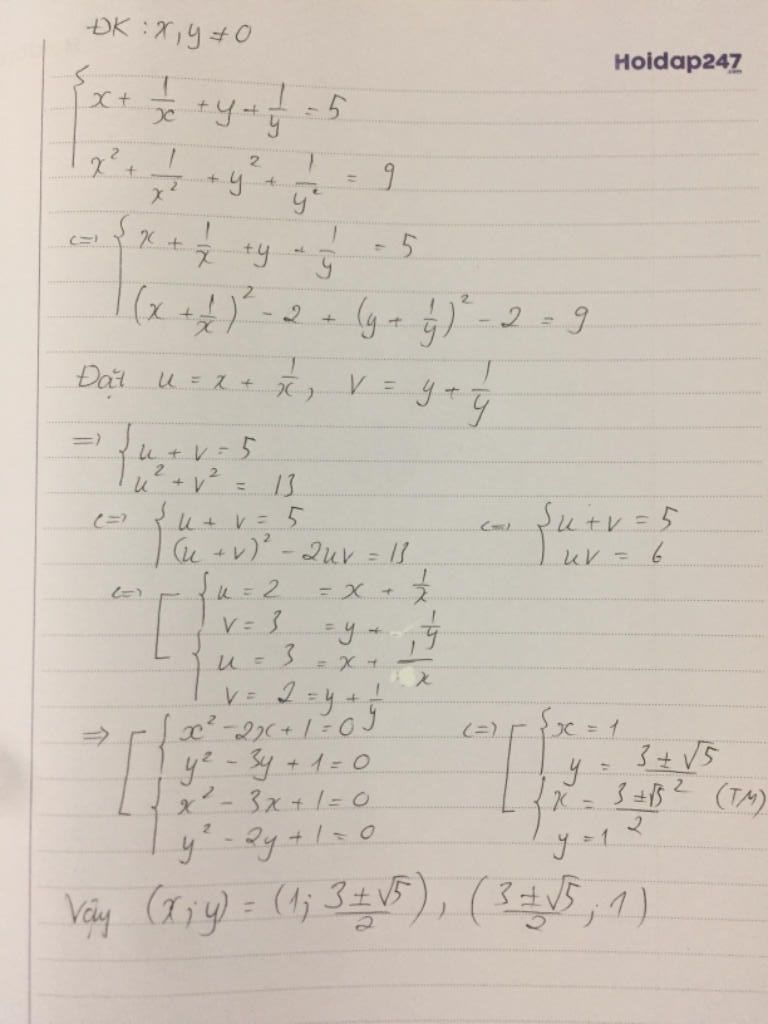 ĐK : x, y ≠ 0
Hoidap247
.com
{ x + 1/x + y + 1/y = 5
x² + 1/x² + y² + 1/y² = 9
<=> { x + 1/x + y + 1/y = 5
(x + 1/x)² - 2 + (y + 1/y)² - 2 = 9
Đặt u = x + 1/x, v = y + 1/y
=> { u + v = 5
u² + v² = 13
<=> { u + v = 5 <=> { u + v = 5
(u + v)² - 2uv = 13 uv = 6
<=> [ { u = 2 = x + 1/x
v = 3 = y + 1/y
{ u = 3 = x + 1/x
v = 2 = y + 1/y
=> [ { x² - 2x + 1 = 0 <=> [ { x = 1
y² - 3y + 1 = 0 y = (3 ± √5)/2
{ x² - 3x + 1 = 0 { x = (3 ± √5)/2 (TM)
y² - 2y + 1 = 0 y = 1
Vậy (x; y) = (1; (3 ± √5)/2), ((3 ± √5)/2; 1)